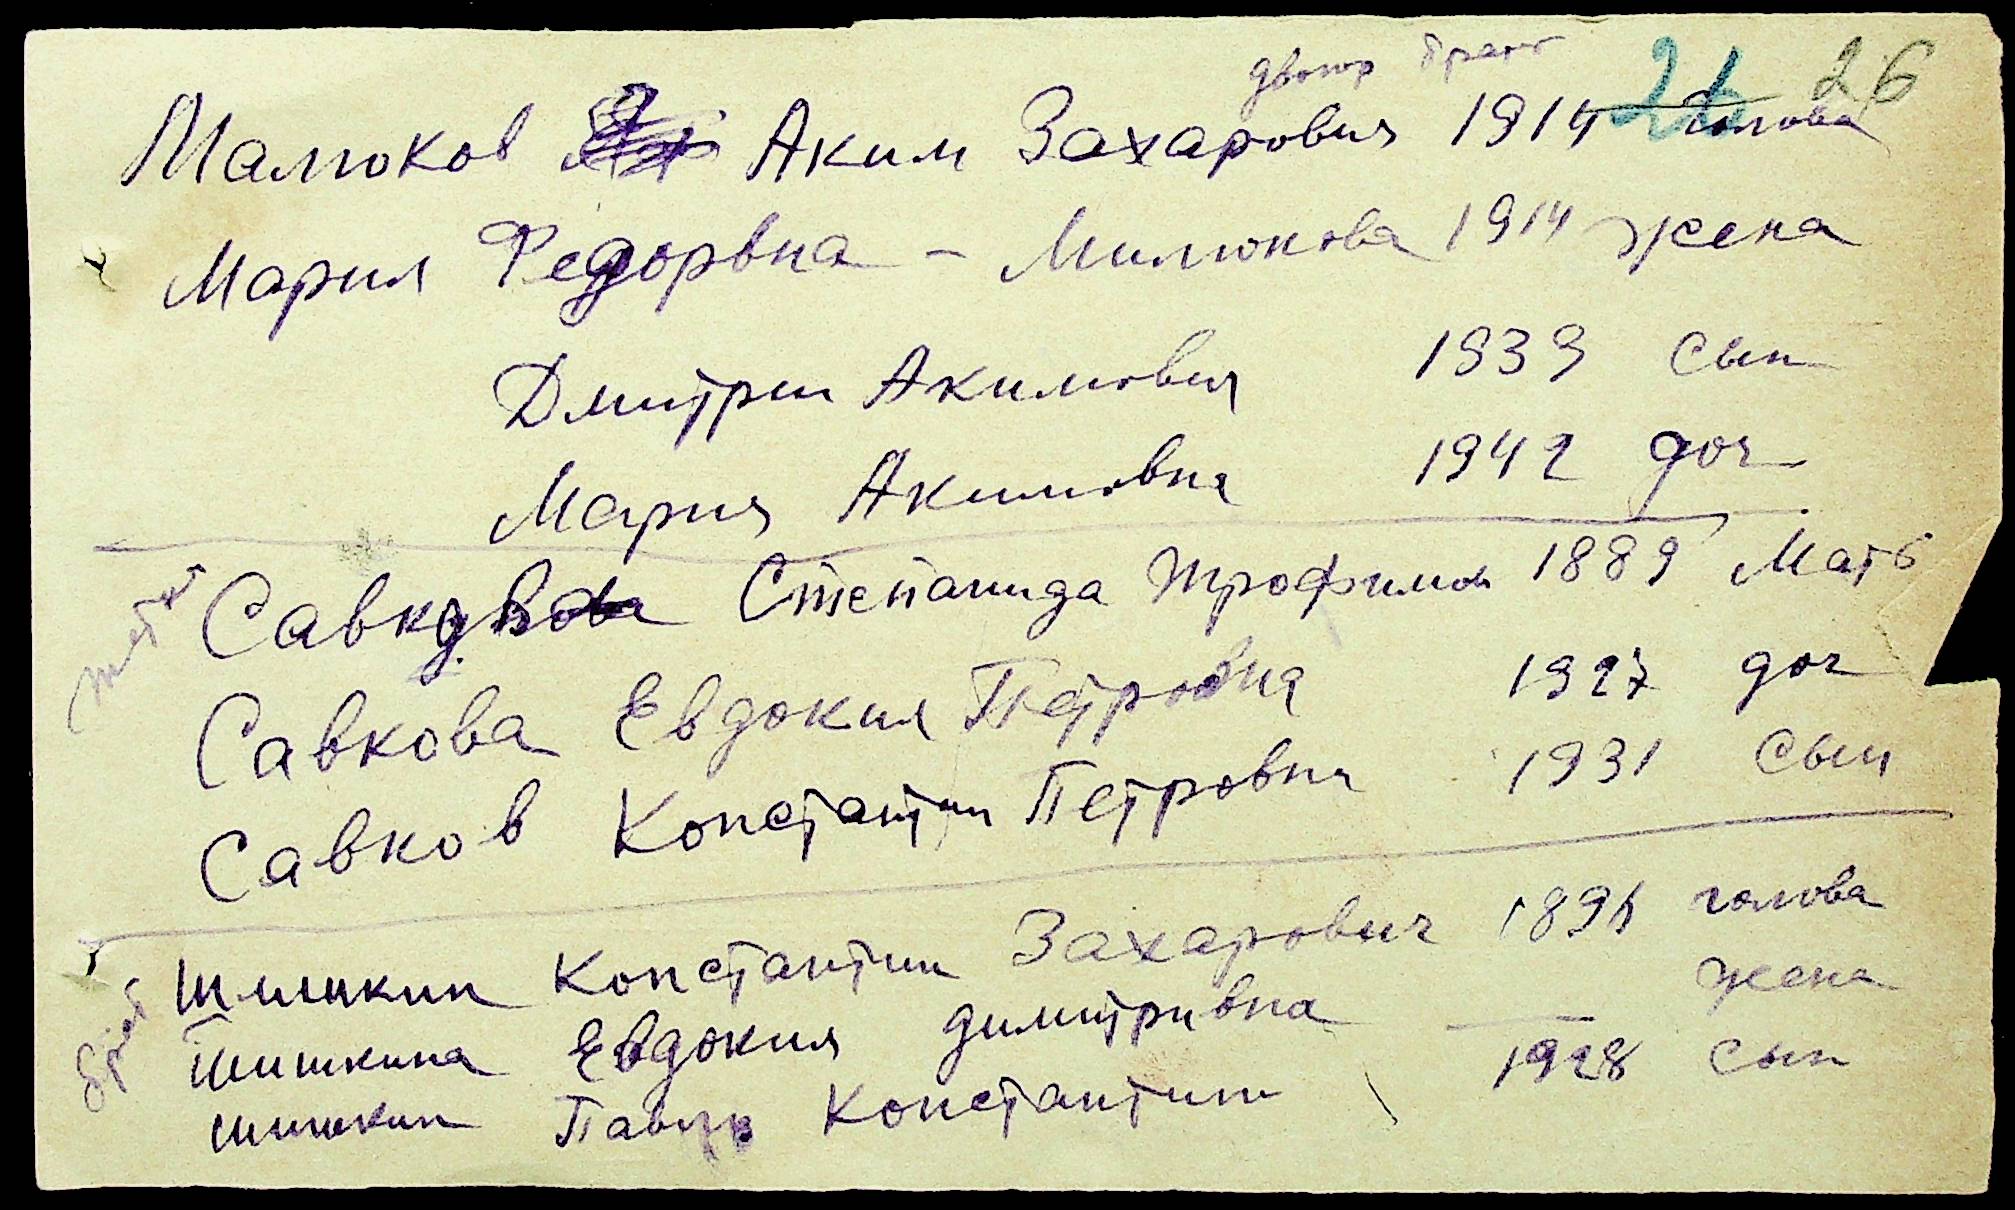 26 26
двоюр брат
Малюков Аким Захарович 1914 голова
Мария Федорвна - Милюкова 1914 жена
Дмитрии Акимович 1939 сын
Мария Акимовна 1942 доч
Степанида Трофимов 1889 Мать
Савкова Евдокия Петровна 1927 доч
Савков Константин Петрович 1931 сын
Шишкин Константин Захарович голова
Шишкина Евдокия Димитривна — жена
брат
Шишкин Константин 1928 сын